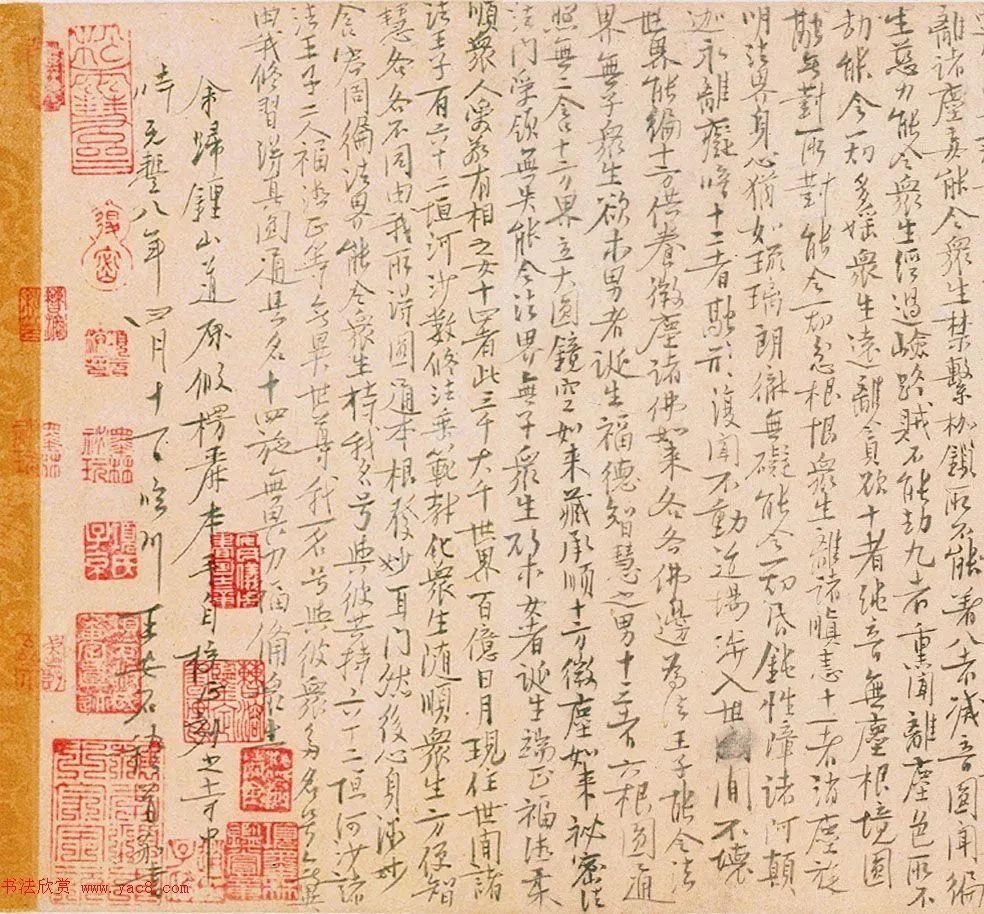 離諸塵妄能令衆生禁繫枷鎖所不能著八者滅音圓聞徧
生慈力能令衆生經過嶮路賊不能劫九者熏聞離塵色所不
劫能令一切多婬衆生遠離貪欲十者純音無塵根境圓
融無對所對能令一切忿根恨衆生離諸瞋恚十一者消塵旋
明法界身心猶如琉璃朗徹無礙能令一切昏鈍性障諸阿顛
迦永離癡暗十二者融形復聞不動道場涉入世間不壞
世界能徧十方供養微塵諸佛如來各各佛邊為法王子能令法
界無子衆生欲求男者誕生福德智慧之男十三者六根圓通
照無二含十方界立大圓鏡空如來藏承順十方微塵如來祕密
法門受領無失能令法界無子衆生欲求女者誕生端正福德柔
順衆人愛敬有相之女十四者此三千大千世界百億日月現住世間諸
法王子有六十二恒河沙數修法垂範教化衆生隨順衆生方便智
慧各各不同由我所得圓通本根發妙耳門然後心身微妙
含容周徧法界能令衆生持我名号與彼共持六十二恒河沙諸
法王子二人福德正等無異世尊我一名号與彼衆多名号無異
由我修習得真圓通是名十四施無畏力福備衆生
余歸鍾山道原假楞嚴本手自校正刻之寺中
時元豐八年四月十一日臨川王安石稽首敬書
墨林祕玩
項氏子京
书法欣赏
www.yac8.com